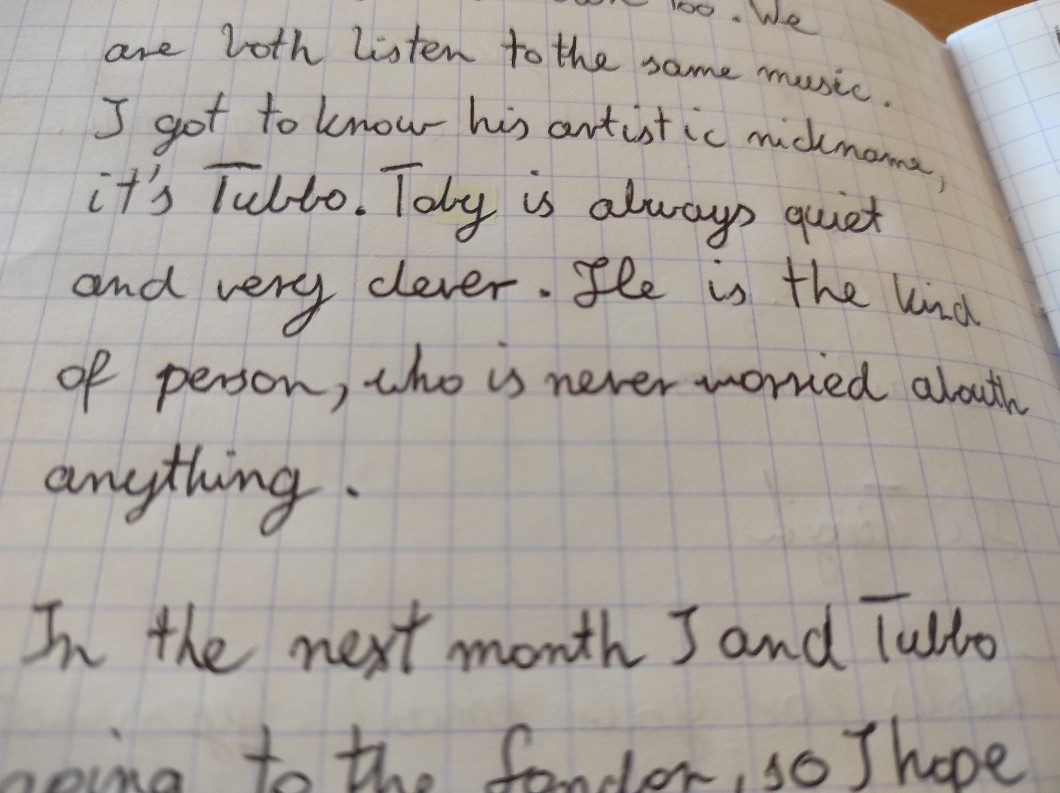 too. We
are both listen to the same music.
I got to know his artistic nickname,
it's Tubbo. Toby is always quiet
and very clever. He is the kind
of person, who is never worried abouth
anything.
In the next month I and Tubbo
going to the , so I hope